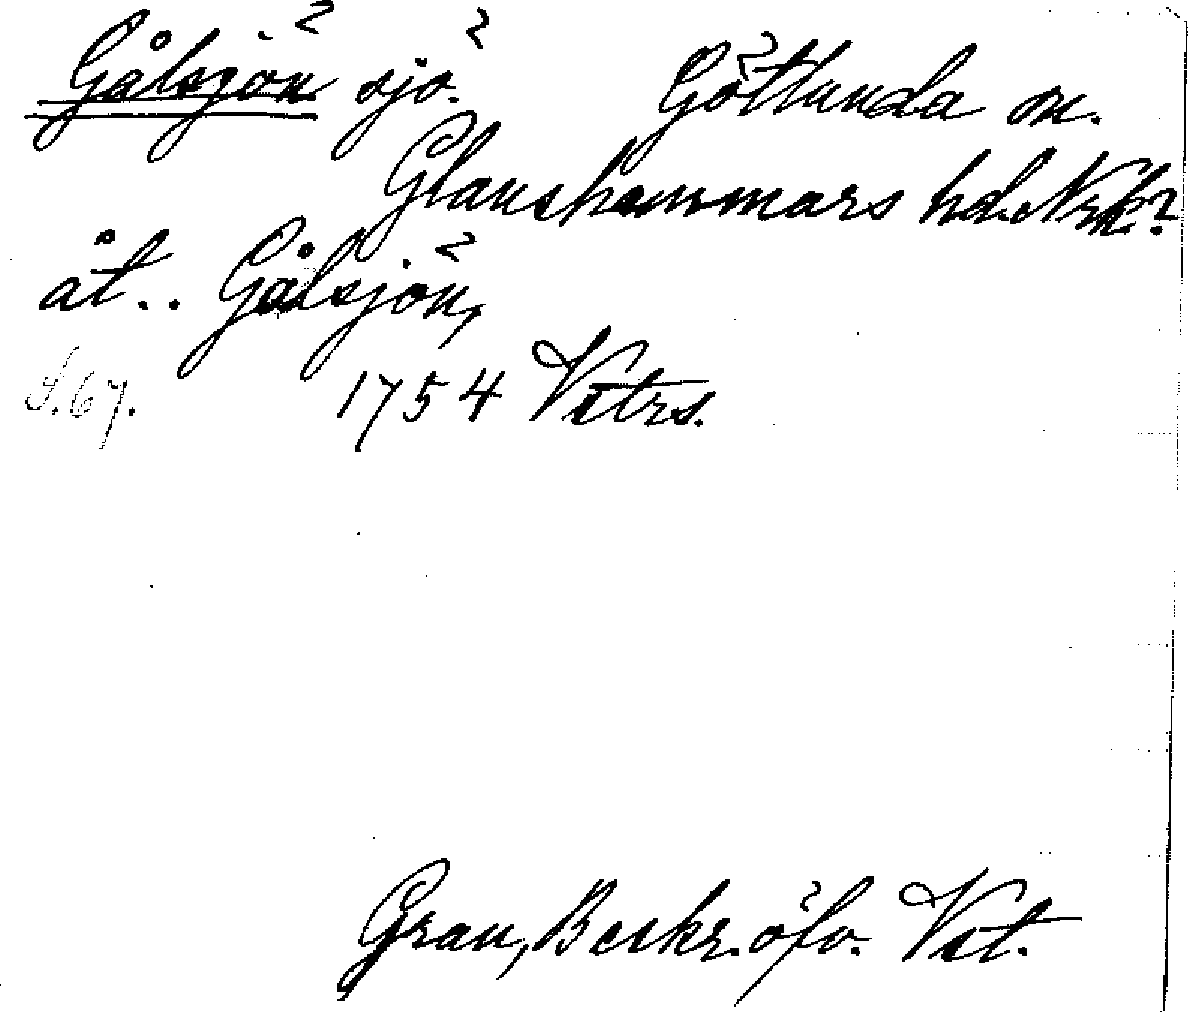 Gålsjön sjö. Götlunda sn.
Glanshammars hd. Nrk?
åt.. Gålsjön,
S. 67. 1754 Vstrs.
Grau, Beskr. öfv. Vst.